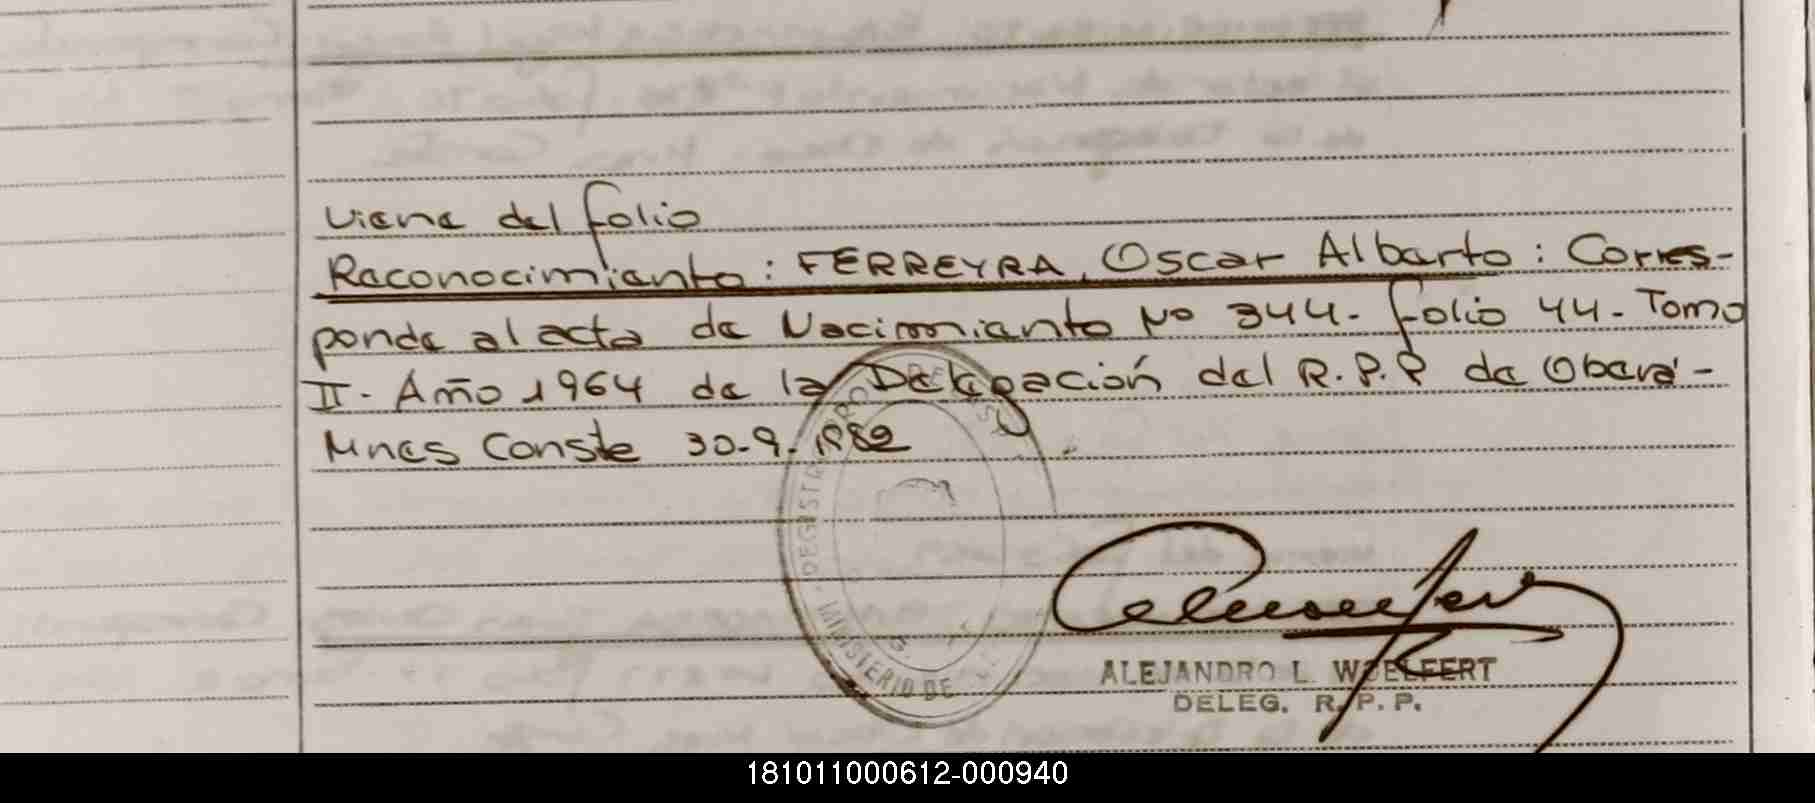 Viene del folio
Reconocimiento: FERREYRA, Oscar Alberto: Corres-
ponde al acta de Nacimiento Nº 344. folio 44. Tomo
II. Año 1964 de la Delegación del R.P.P de Oberá-
Mnes Conste 30-9-1982
MINISTERIO DE
ALEJANDRO L. WOELFERT
DELEG. R.P.P.
181011000612-000940